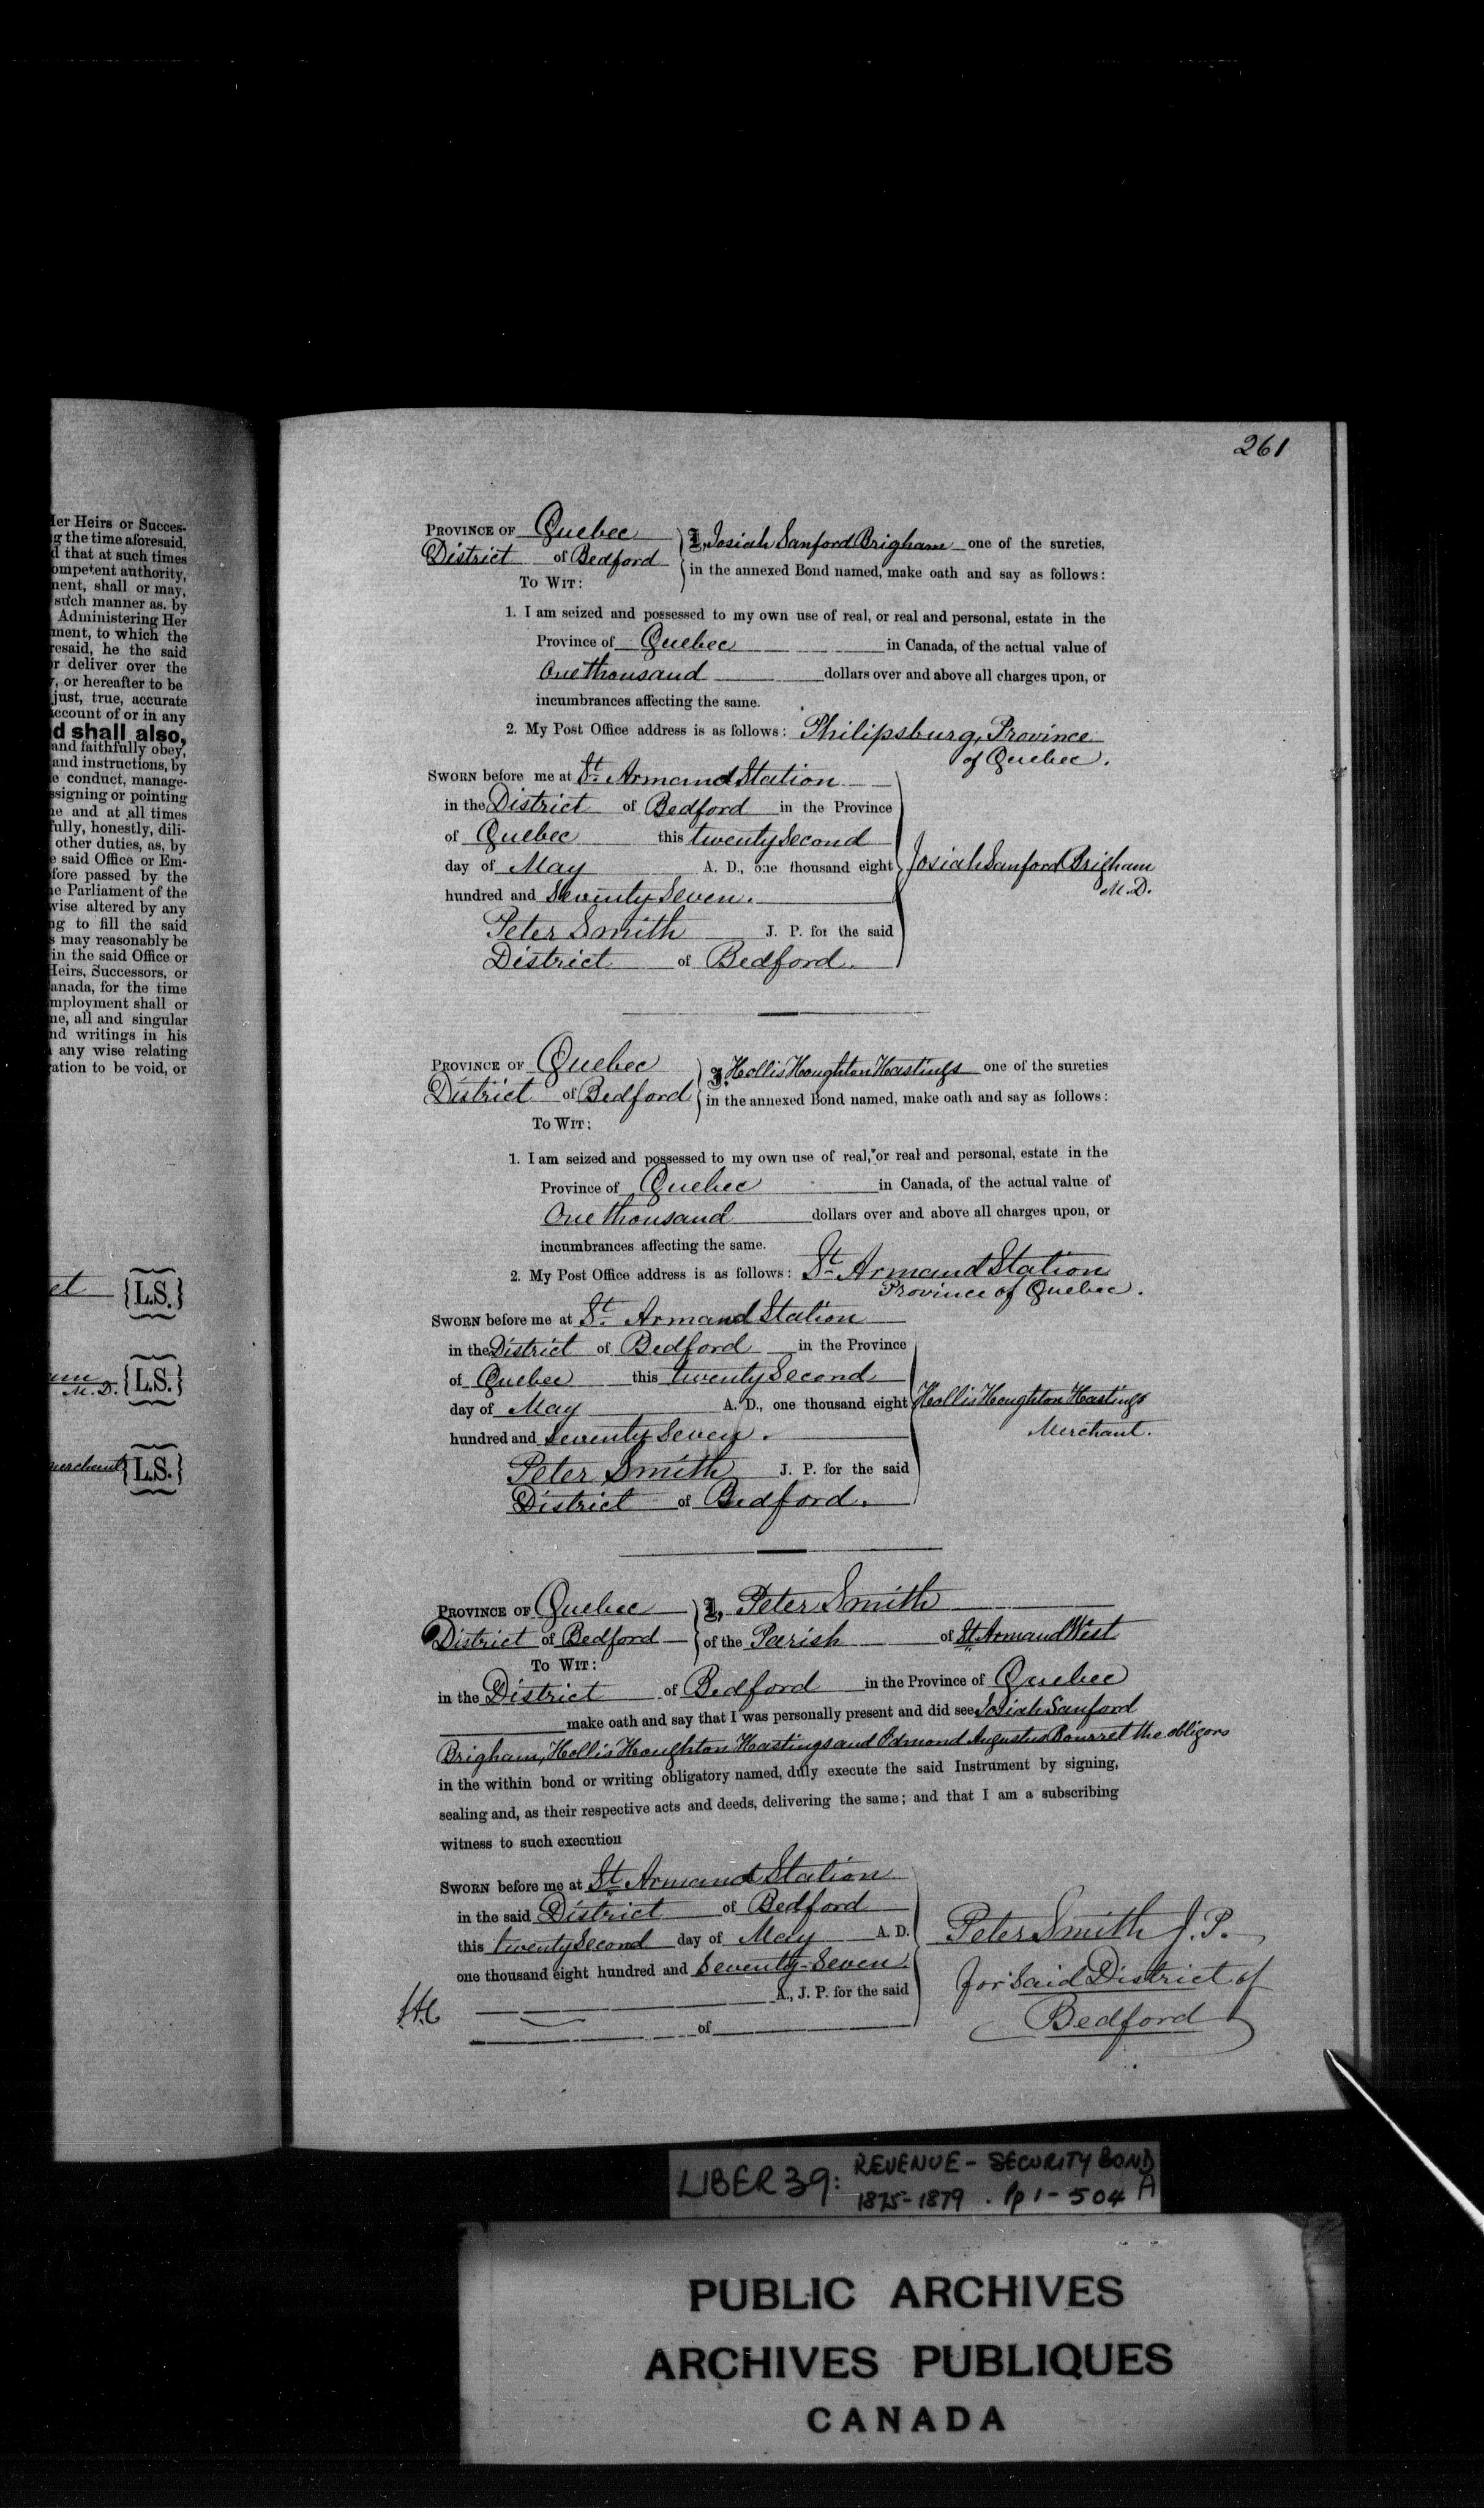 261
Her Heirs or Succes-
g the time aforesaid,
d that at such times
ompetent authority,
ment, shall or may,
such manner as. by
Administering Her
ment, to which the
resaid, he the said
r deliver over the
, or hereafter to be
just, true, accurate
ccount of or in any
d shall also,
and faithfully obey,
and instructions, by
e conduct, manage-
ssigning or pointing
ne and at all times
fully, honestly, dili-
other duties, as, by
e said Office or Em-
fore passed by the
he Parliament of the
wise altered by any
ng to fill the said
s may reasonably be
in the said Office or
Heirs, Successors, or
anada, for the time
mployment shall or
ne, all and singular
nd writings in his
any wise relating
ation to be void, or
{L.S.}
M.D. {L.S.}
merchant {L.S.}
PROVINCE OF Quebec
District of Bedford
TO WIT:
I, Josiah Sanford Brigham one of the sureties,
in the annexed Bond named, make oath and say as follows:
1. I am seized and possessed to my own use of real, or real and personal, estate in the
Province of Quebec in Canada, of the actual value of
One thousand dollars over and above all charges upon, or
incumbrances affecting the same.
2. My Post Office address is as follows: Philipsburg, Province
of Quebec.
SWORN before me at St. Armand Station
in the District of Bedford in the Province
of Quebec this twenty Second
day of May A. D., one thousand eight
hundred and Seventy Seven.
Peter Smith J. P. for the said
District of Bedford.
Josiah Sanford Brigham
M.D.
PROVINCE OF Quebec
District of Bedford
TO WIT:
I, Hollis Houghton Hastings one of the sureties
in the annexed Bond named, make oath and say as follows:
1. I am seized and possessed to my own use of real, or real and personal, estate in the
Province of Quebec in Canada, of the actual value of
One thousand dollars over and above all charges upon, or
incumbrances affecting the same.
2. My Post Office address is as follows: St. Armand Station
Province of Quebec.
SWORN before me at St. Armand Station
in the District of Bedford in the Province
of Quebec this twenty Second
day of May A. D., one thousand eight
hundred and Seventy Seven.
Peter Smith J. P. for the said
District of Bedford.
Hollis Houghton Hastings
Merchant.
PROVINCE OF Quebec
District of Bedford
TO WIT:
I, Peter Smith
of the Parish of St. Armand West
in the District of Bedford in the Province of Quebec
make oath and say that I was personally present and did see Josiah Sanford
Brigham, Hollis Houghton Hastings and Edmond Augustus Bourret the obligors
in the within bond or writing obligatory named, duly execute the said Instrument by signing,
sealing and, as their respective acts and deeds, delivering the same; and that I am a subscribing
witness to such execution
SWORN before me at St. Armand Station
in the said District of Bedford
this twenty Second day of May A. D.
one thousand eight hundred and Seventy-Seven.
A., J. P. for the said
of
Peter Smith J. P.
for Said District of
Bedford
LIBER 39: REVENUE - SECURITY BOND
1875-1879 . Pp 1 - 504 A
PUBLIC ARCHIVES
ARCHIVES PUBLIQUES
CANADA